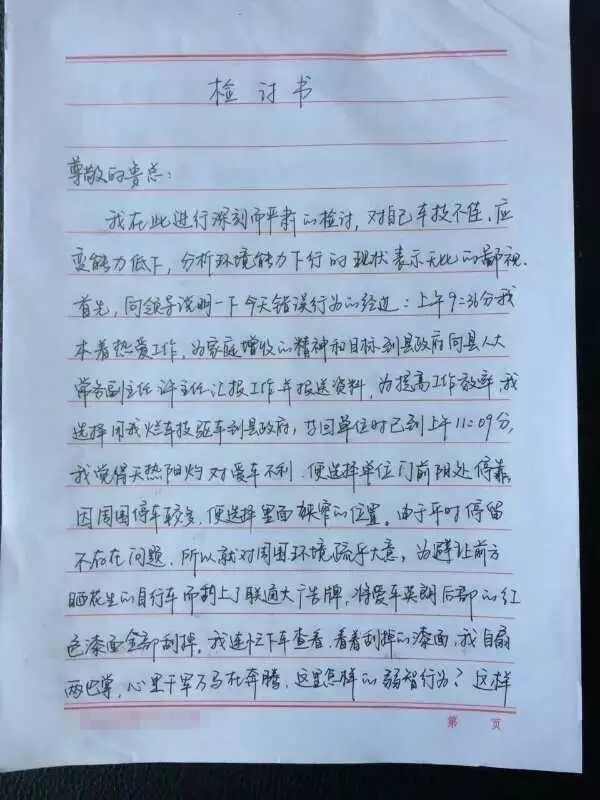 检讨书
尊敬的鲁总：
我在此进行深刻而严肃的检讨，对自己车技不佳、应
变能力低下，分析环境能力下行的现状表示无比的鄙视.
首先，向领导说明一下今天错误行为的经过：上午9:36分我
本着热爱工作，为家庭增收的精神和目标到县政府向县人大
常务副主任许主任汇报工作并报送资料，为提高工作效率，我
选择用我烂车技驱车到县政府，返回单位时已到上午11:09分，
我觉得天热阳灼对爱车不利，便选择单位门前阴处停靠，
因周围停车较多，便选择里面狭窄的位置。由于平时停留
不存在问题，所以就对周围环境疏乎大意，为避让前方
晒花生的自行车而蹭上了联通大广告牌，将爱车英朗后部的红
色漆面全部刮掉。我连忙下车查看，看着刮掉的漆面，我自扇
两巴掌，心里千军万马在奔腾，这是怎样的弱智行为？这样
第 页